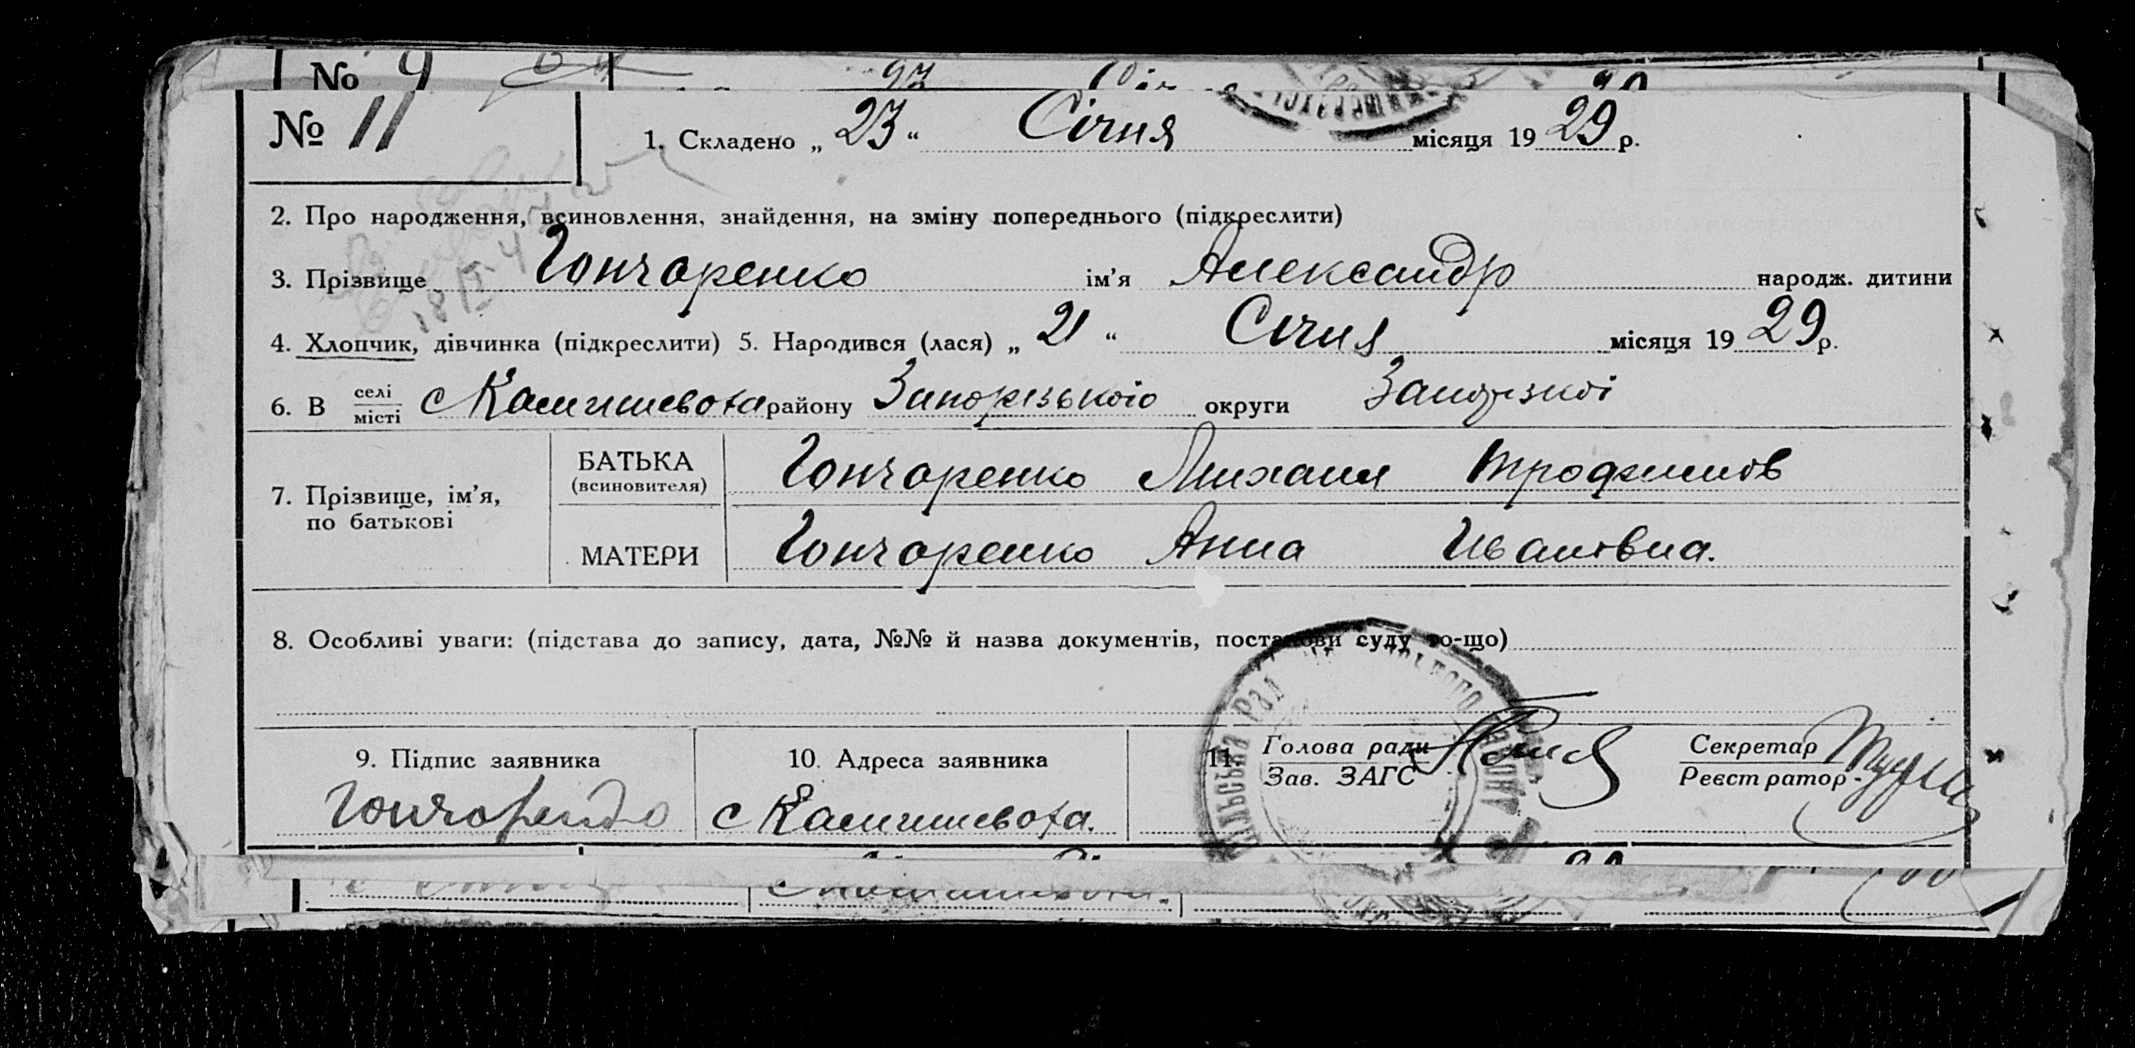 № 9
№ 11
1. Складено „ 23 “ Січня місяця 19 29 р.
2. Про народження, всиновлення, знайдення, на зміну попереднього (підкреслити)
3. Прізвище Гончаренко ім’я Александр народж. дитини
4. Хлопчик, дівчинка (підкреслити) 5. Народився (лася) „ 21 “ Січня місяця 19 29 р.
6. В селі місті с Камишеваха району Запорізького округи Запорізкої
7. Прізвище, ім’я, по батькові
БАТЬКА (всиновителя) Гончаренко Михаил Трофимов
МАТЕРИ Гончаренко Анна Ивановна.
8. Особливі уваги: (підстава до запису, дата, №№ й назва документів, постанови суду то-що)
9. Підпис заявника 10. Адреса заявника 11. Голова ради Секретар
Зав. ЗАГС Реєстратор
Гончаренко с Камишеваха.